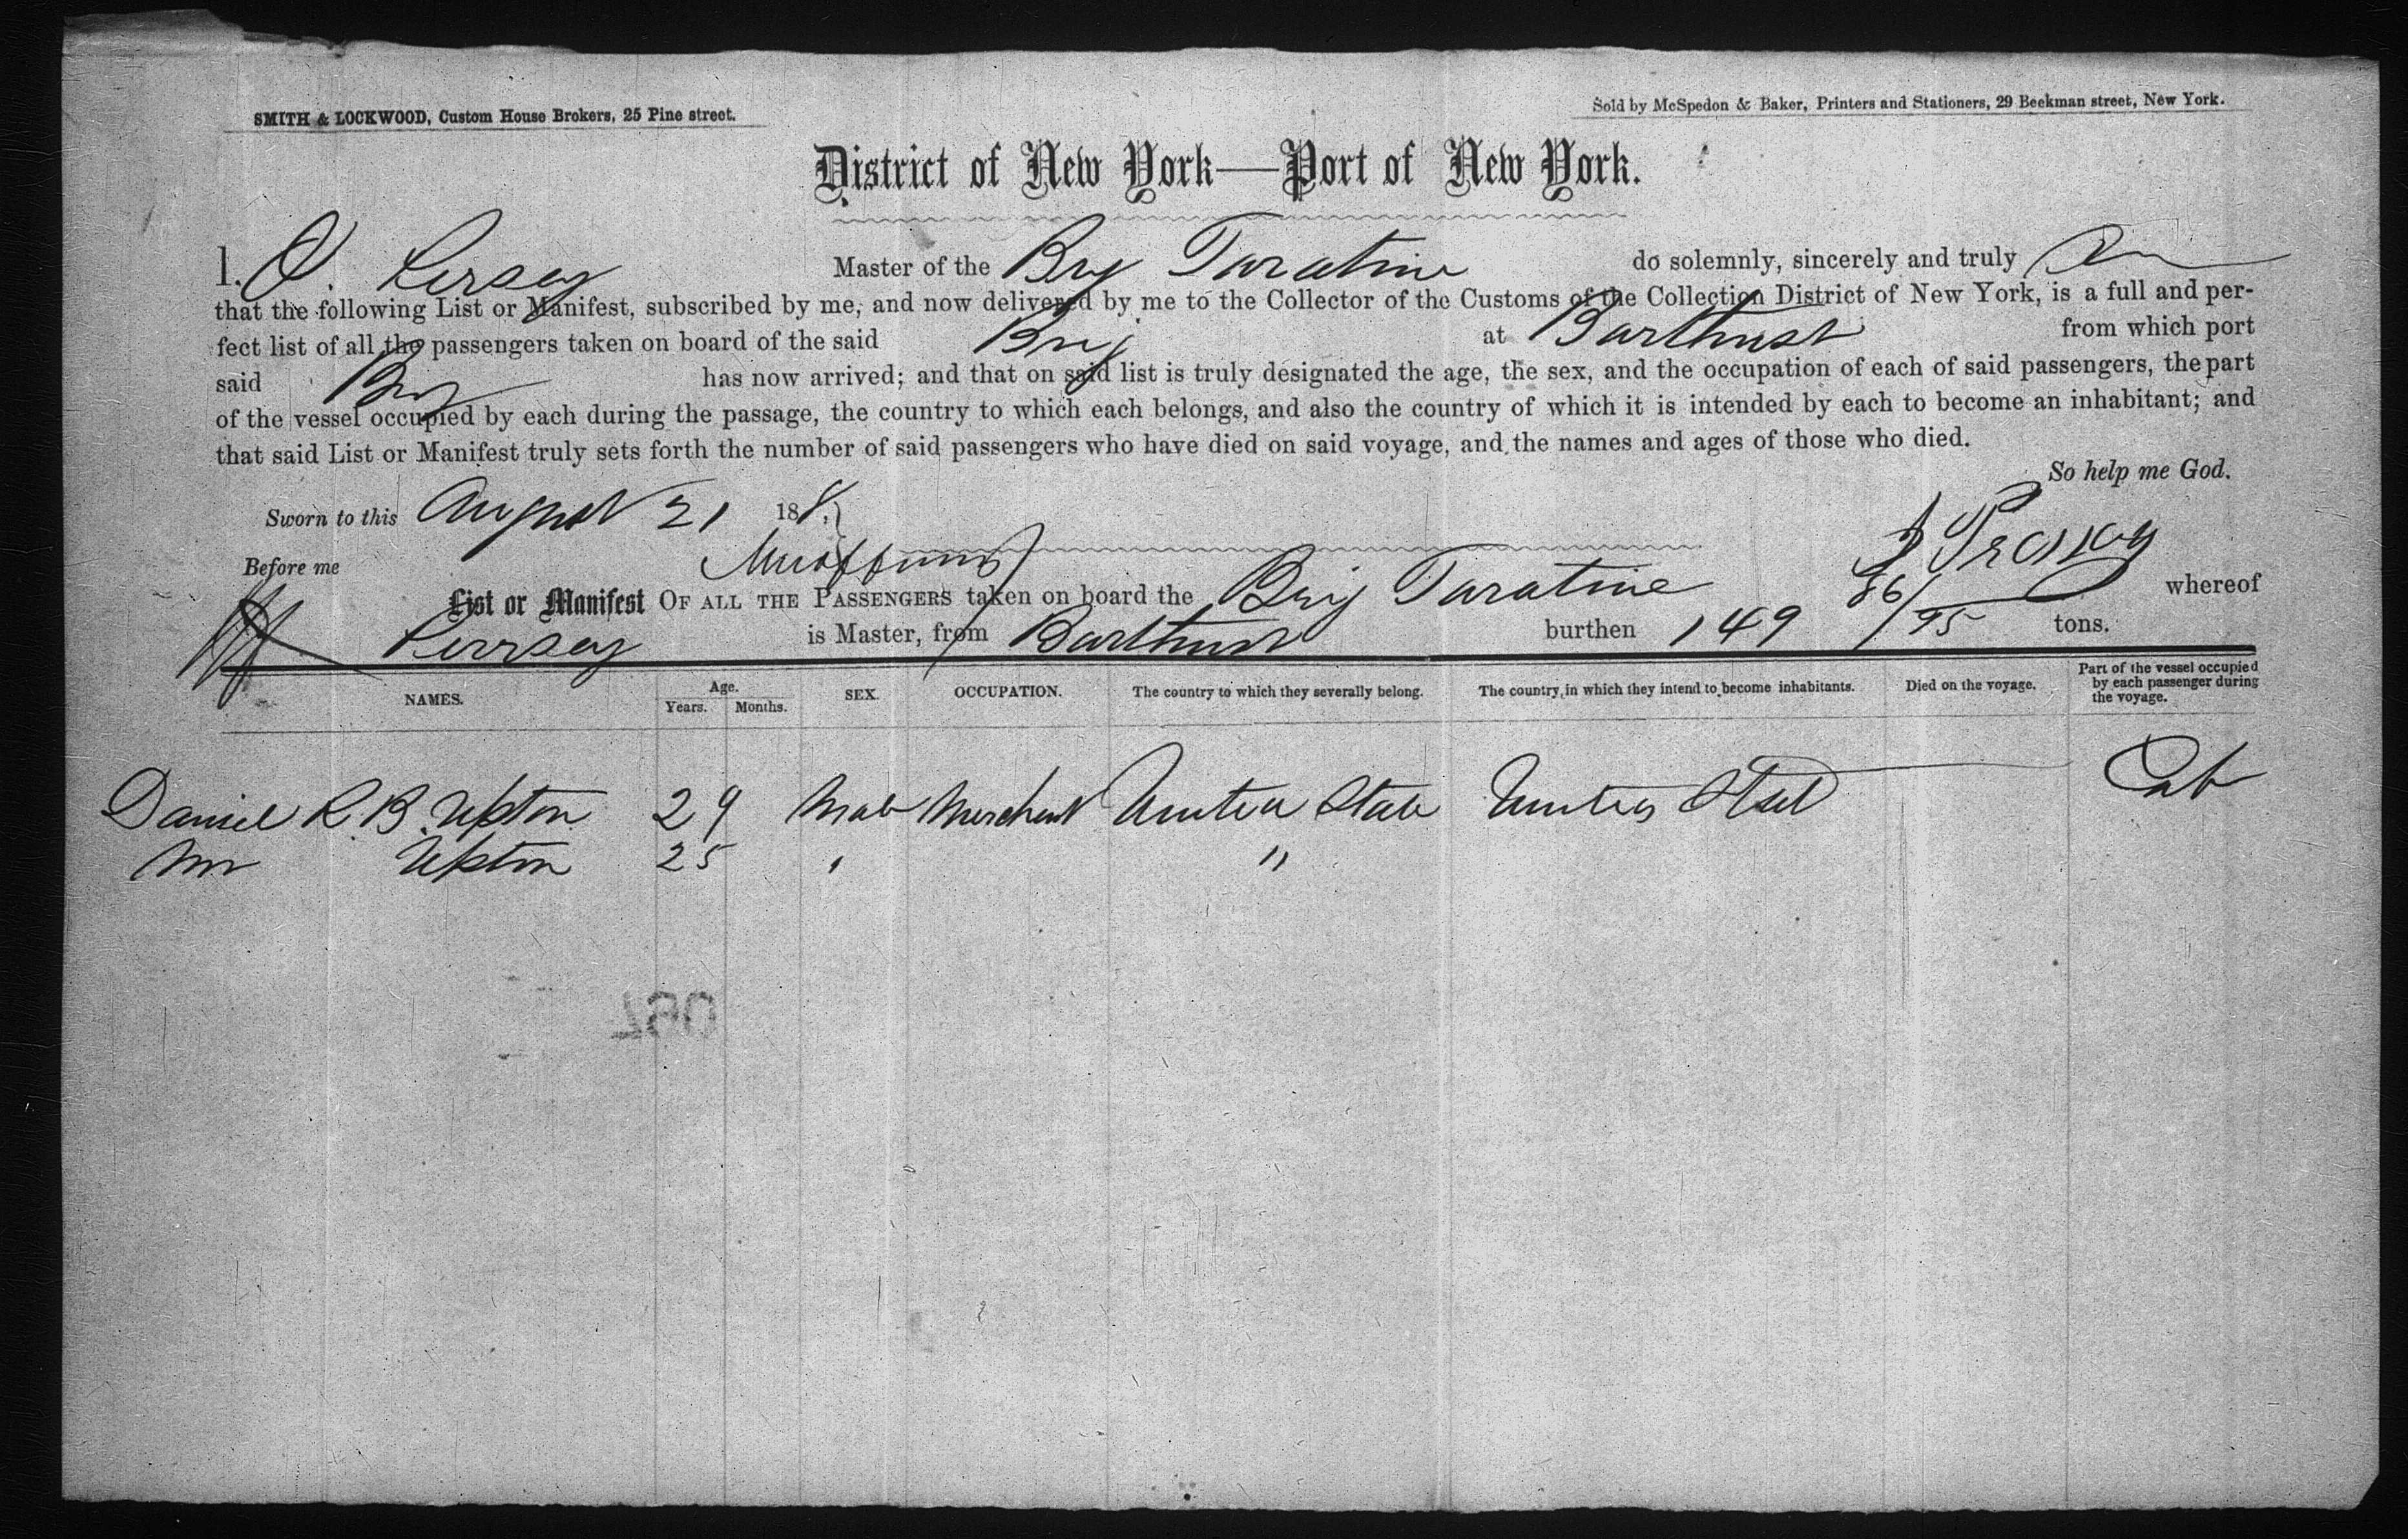 SMITH & LOCKWOOD, Custom House Brokers, 25 Pine street.
Sold by McSpedon & Baker, Printers and Stationers, 29 Beekman street, New York.
District of New York—Port of New York.
I. Master of the Brig Taratine do solemnly, sincerely and truly
that the following List or Manifest, subscribed by me, and now delivered by me to the Collector of the Customs of the Collection District of New York, is a full and per-
fect list of all the passengers taken on board of the said Brig at Barthurst from which port
said Brig has now arrived; and that on said list is truly designated the age, the sex, and the occupation of each of said passengers, the part
of the vessel occupied by each during the passage, the country to which each belongs, and also the country of which it is intended by each to become an inhabitant; and
that said List or Manifest truly sets forth the number of said passengers who have died on said voyage, and the names and ages of those who died.
So help me God.
Sworn to this August 21 18
Before me
List or Manifest OF ALL THE PASSENGERS taken on board the Brig Taratine whereof
is Master, from Barthurst burthen 149 86/95 tons.
NAMES. Age. Years. Months. SEX. OCCUPATION. The country to which they severally belong. The country in which they intend to become inhabitants. Died on the voyage. Part of the vessel occupied by each passenger during the voyage.
Daniel R B Upton 29 Male Merchant United State United Stat Cab
Upton 25 " "
780